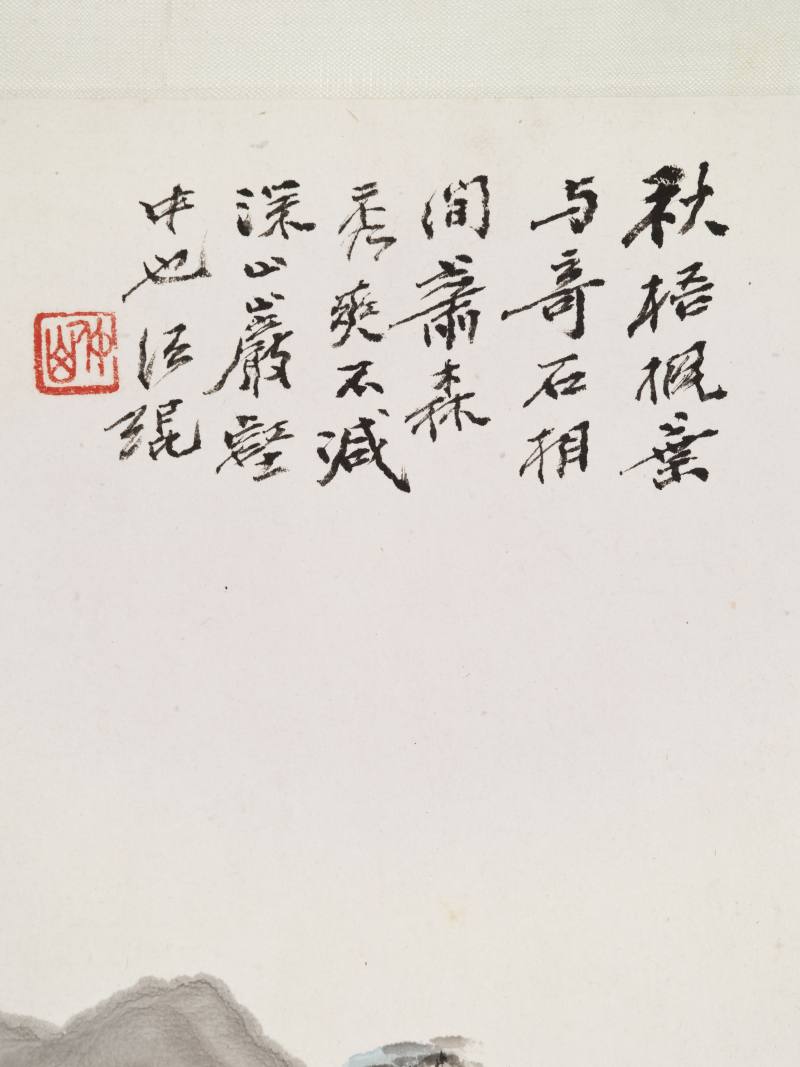 秋梧楓葉
与奇石相
間蕭森
秀爽不減
深山巖壑
中也 琨
仲山